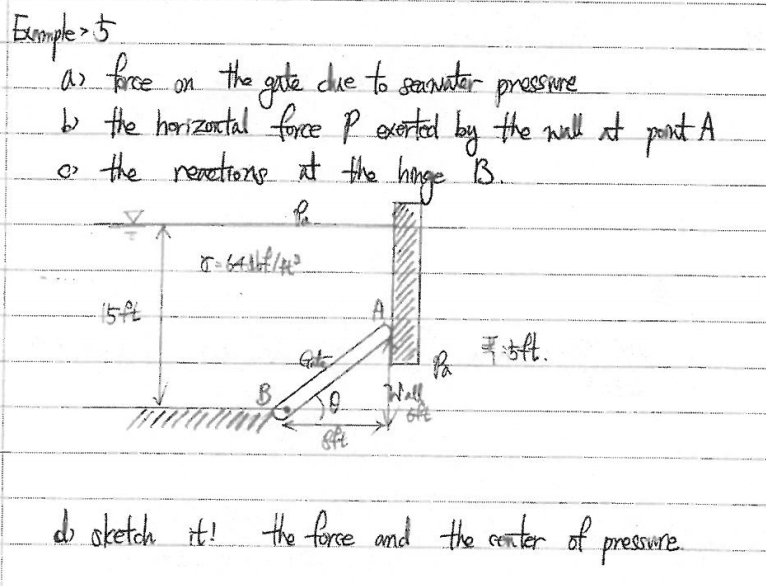 Example > 5
a) force on the gate due to seawater pressure
b) the horizontal force P exerted by the wall at point A
c) the reactions at the hinge B.
Pa
γ = 64 lbf/ft³
15ft
A
Gate
Pa
폭 : 5ft.
B
θ
Wall
6ft
8ft
d) sketch it! the force and the center of pressure.